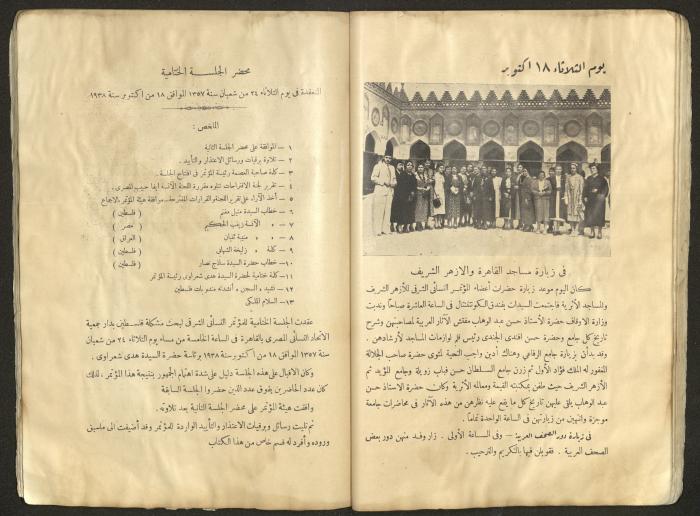 يوم الثلاثاء ١٨ اكتوبر
في زيارة مساجد القاهرة والازهر الشريف
كان اليوم موعد زيارة حضرات أعضاء المؤتمر النسائي الشرقي للأزهر الشريف
والمساجد الأثرية فاجتمعت السيدات بفندق الكونتنتال في الساعة العاشرة صباحاً وندبت
وزارة الاوقاف حضرة الأستاذ حسن عبد الوهاب مفتش الآثار العربية لمصاحبتهن وشرح
تاريخ كل جامع وحضرة حسن افندى الجندى رئيس قلم لوازمات المساجد لأرشادهن .
وقد بدأن بزيارة جامع الرفاعي وهناك أدين واجب التحية لمثوى حضرة صاحب الجلالة
المغفور له الملك فؤاد الأول ثم زرن جامع السلطان حسن فباب زويلة وجامع المؤيد ثم
الأزهر الشريف حيث طفن بمكتبته القيمة ومعالمه الأثرية وكان حضرة الاستاذ حسن
عبد الوهاب يلقي عليهن تاريخ كل ما يقع عليه نظرهن من هذه الآثار في محاضرات جامعة
موجزة وانتهين من زيارتهن في الساعة الواحدة تماماً .
في زيارة دور الصحف العربية : — وفي الساعة الأولى . زار وفد منهن دور بعض
الصحف العربية . فقوبلن فيها بالتكريم والترحيب .
محضر الجلسة الختامية
المنعقدة في يوم الثلاثاء ٢٤ من شعبان سنة ١٣٥٧ الموافق ١٨ من اكتوبر سنة ١٩٣٨
الملخص :
١ — الموافقة على محضر الجلسة الثانية
٢ — تلاوة برقيات ورسائل الاعتذار والتأييد .
٣ — كلمة صاحبة العصمة رئيسة المؤتمر في افتتاح الجلسة .
٤ — تقرير لجنة الاقتراحات تتلوه مقررة اللجنة الآنسة ايفا حبيب المصرى .
٥ — أخذ الآراء على تقرير اللجنة والقرارات المقترحة . موافقة هيئة المؤتمر بالاجماع
٦ — خطاب السيدة متيل مغنم ( فلسطين )
٧ — » الآنسة زينب الحكيم ( مصر )
٨ — » » منيبة ثنيان ( العراق )
٩ — كلمة » زليخة الشهابي ( فلسطين )
١٠ — خطاب حضرة السيدة ساذج نصار ( فلسطين )
١١ — كلمة ختامية لحضرة السيدة هدى شعراوى رئيسة المؤتمر
١٢ — نشيد « السجن » أنشدته مندوبات فلسطين
١٣ — السلام الملكي
عقدت الجلسة الختامية للمؤتمر النسائي الشرقي لبحث مشكلة فلسطين بدار جمعية
الاتحاد النسائي المصرى بالقاهرة في الساعة الخامسة من مساء يوم الثلاثاء ٢٤ من شعبان
سنة ١٣٥٧ الموافق ١٨ من أكتوبر سنة ١٩٣٨ برئاسة حضرة السيدة هدى شعراوى .
وكان الاقبال على هذه الجلسة دليل على شدة اهتمام الجمهور بنتيجة هذا المؤتمر ، لذلك
كان عدد الحاضرين يفوق عدد الذين حضروا الجلسة السابقة
وافقت هيئة المؤتمر على محضر الجلسة الثانية بعد تلاوته .
ثم تليت رسائل وبرقيات الاعتذار والتأييد الواردة للمؤتمر وقد أضيفت الى ماسبق
وروده وأفرد له قسم خاص من هذا الكتاب